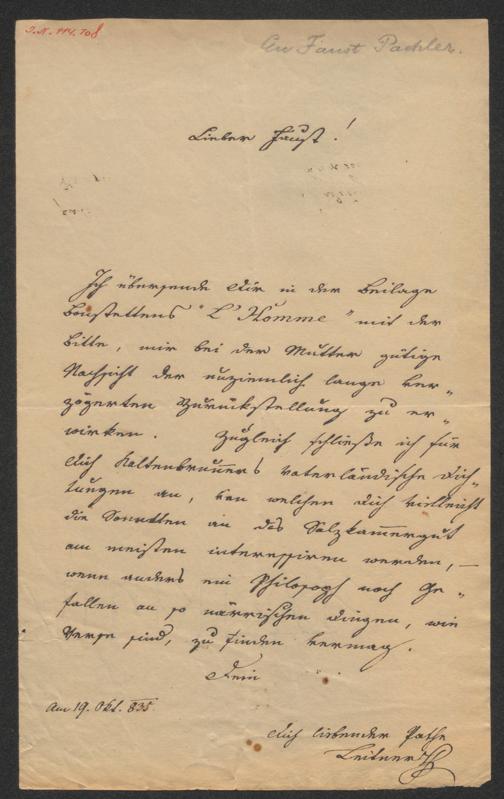 J.N. 114.708
An Faust Pachler.
Lieber Faust!
Ich übersende Dir in der Beilage
Bonstettens "L'Homme" mit der
Bitte, mir bei der Mutter gütige
Nachsicht der unziemlich lange ver„
zögerten Zurückstellung zu er„
wirken. Zugleich schließe ich für
Dich Kaltenbrunners vaterländische Dich„
tungen an, von welchen Dich vielleicht
die Sonetten an das Salzkammergut
am meisten interessiren werden, —
wenn anders ein Philosoph noch Ge„
fallen an so närrischen Dingen, wie
Verse sind, zu finden vermag.
Dein
Am 19. Okt. 835
Dich liebender Pathe
Leitner